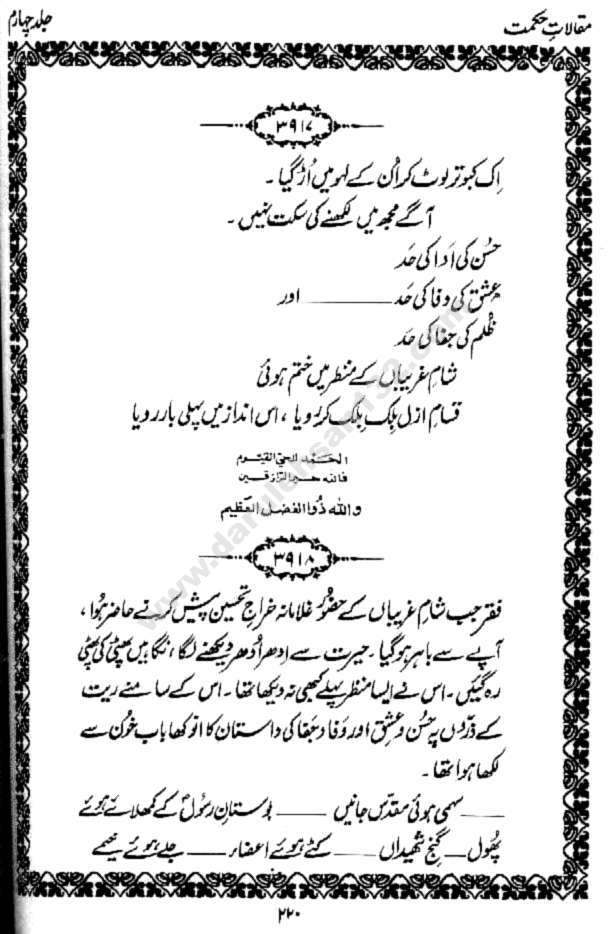 مقالاتِ حکمت
جلد چہارم
۳۹۱۷
اِک کبوتر لوٹ کر اُن کے لہو میں اُڑ گیا ۔
آگے مجھ میں لکھنے کی سکت نہیں ۔
حُسن کی اَدا کی حَد
عِشق کی وفا کی حَد ــــــــــ اور
ظُلم کی جفا کی حَد
شامِ غریباں کے منظر میں ختم ہوئی
قسامِ ازل بِلک بِلک کر رویا ، اس انداز میں پہلی بار رویا
الحَمد للحیِّ القیّوم
فاللہ خیر الرّازقین
واللہ ذُوالفضل العظیم
۳۹۱۸
فقر جب شامِ غریباں کے حضُور غلامانہ خراجِ تحسین پیش کرنے حاضر ہُوا ،
آپے سے باہر ہو گیا ۔ حیرت سے ادھر اُدھر دیکھنے لگا ، نگاہیں پھٹی کی پھٹی
رہ گئیں ۔ اس نے ایسا منظر پہلے کبھی نہ دیکھا تھا ۔ اس کے سامنے ریت
کے ذرّوں پہ حُسن و عِشق اور وَفا و جَفا کی داستان کا انوکھا باب خُون سے
لکھا ہوا تھا ۔
ــــــ سہمی ہوئی مقدّس جانیں ــــــ بوستانِ رسُولؐ کے کمھلائے ہوئے
پھُول ــــ گنجِ شھیداں ــــــ کٹے ہوئے اعضاء ــــــ جلے ہوئے خیمے
۲۲۰
www.darulehsan132.com